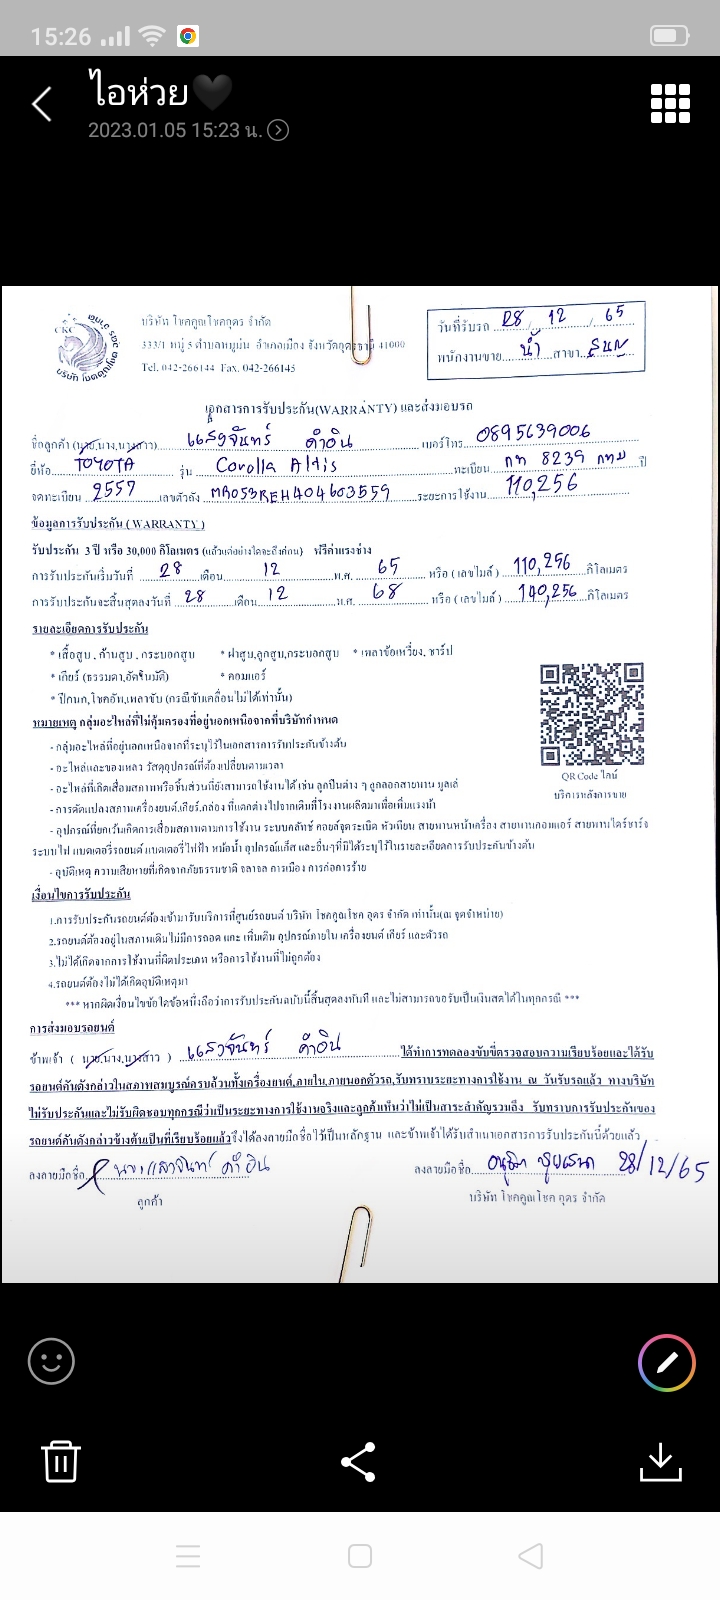 15:26
ไอห่วย🖤
2023.01.05 15:23 น.
CKC
บริษัท โชคคูณโชคอุดร จำกัด
333/1 หมู่ 5 ตำบลหมูม่น อำเภอเมือง จังหวัดอุดรธานี 41000
Tel. 042-266144 Fax. 042-266145
วันที่รับรถ 28 / 12 / 65
พนักงานขาย น้ำ สาขา
เอกสารการรับประกัน(WARRANTY) และส่งมอบรถ
ชื่อลูกค้า (นาย,นาง,นางสาว) แสงจันทร์ คำอิน เบอร์โทร 0895639006
ยี่ห้อ TOYOTA รุ่น Corolla Altis ทะเบียน 8239 กทม ปี
จดทะเบียน 2557 เลขตัวถัง MR053REH404603559 ระยะการใช้งาน 110,256
ข้อมูลการรับประกัน ( WARRANTY )
รับประกัน 3 ปี หรือ 30,000 กิโลเมตร (แล้วแต่อย่างใดจะถึงก่อน) ฟรีค่าแรงช่าง
การรับประกันเริ่มวันที่ 28 เดือน 12 พ.ศ. 65 หรือ ( เลขไมล์ ) 110,256 กิโลเมตร
การรับประกันจะสิ้นสุดลงวันที่ 28 เดือน 12 พ.ศ. 68 หรือ ( เลขไมล์ ) 140,256 กิโลเมตร
รายละเอียดการรับประกัน
* เสื้อสูบ , ก้านสูบ , กระบอกสูบ * ฝาสูบ,ลูกสูบ,กระบอกสูบ * เพลาข้อเหวี่ยง, ชาร์ป
* เกียร์ (ธรรมดา,อัตโนมัติ) * คอมแอร์
* ปีกนก,โชคอัพ,เพลาขับ (กรณีขับเคลื่อนไม่ได้เท่านั้น)
หมายเหตุ กลุ่มอะไหล่ที่ไม่คุ้มครองที่อยู่นอกเหนือจากที่บริษัทกำหนด
- กลุ่มอะไหล่ที่อยู่นอกเหนือจากที่ระบุไว้ในเอกสารการรับประกันข้างต้น
- อะไหล่และของเหลว วัสดุอุปกรณ์ที่ต้องเปลี่ยนตามเวลา
- อะไหล่ที่เกิดเสื่อมสภาพหรือชิ้นส่วนที่ยังสามารถใช้งานได้ เช่น ลูกปืนต่าง ๆ ลูกลอกสายพาน มูลเล่
- การดัดแปลงสภาพเครื่องยนต์,เกียร์,กล่อง ที่แตกต่างไปจากเดิมที่โรงงานผลิตมาเพื่อเพิ่มแรงม้า
QR Code ไลน์
บริการหลังการขาย
- อุปกรณ์ที่ยกเว้นเกิดการเสื่อมสภาพตามการใช้งาน ระบบคลัทช์ คอยล์จุดระเบิด หัวเทียน สายพานหน้าเครื่อง สายพานคอมแอร์ สายพานไดร์ชาร์จ
ระบบไฟ แบตเตอรี่รถยนต์ แบตเตอรี่ไฟฟ้า หม้อน้ำ อุปกรณ์แก็ส และอื่นๆที่มิได้ระบุไว้ในรายละเอียดการรับประกันข้างต้น
- อุบัติเหตุ ความเสียหายที่เกิดจากภัยธรรมชาติ จลาจล การเมือง การก่อการร้าย
เงื่อนไขการรับประกัน
1.การรับประกันรถยนต์ต้องเข้ามารับบริการที่ศูนย์รถยนต์ บริษัท โชคคูณโชค อุดร จำกัด เท่านั้น(ณ จุดจำหน่าย)
2.รถยนต์ต้องอยู่ในสภาพเดิมไม่มีการถอด แกะ เพิ่มเติม อุปกรณ์ภายใน เครื่องยนต์ เกียร์ และตัวรถ
3.ไม่ได้เกิดจากการใช้งานที่ผิดประเภท หรือการใช้งานที่ไม่ถูกต้อง
4.รถยนต์ต้องไม่ได้เกิดอุบัติเหตุมา
*** หากผิดเงื่อนไขข้อใดข้อหนึ่งถือว่าการรับประกันฉบับนี้สิ้นสุดลงทันที และไม่สามารถขอรับเป็นเงินสดได้ในทุกกรณี ***
การส่งมอบรถยนต์
ข้าพเจ้า ( นาย,นาง,นางสาว ) แสงจันทร์ คำอิน ได้ทำการทดลองขับขี่ตรวจสอบความเรียบร้อยและได้รับ
รถยนต์คันดังกล่าวในสภาพสมบูรณ์ครบถ้วนทั้งเครื่องยนต์,ภายใน,ภายนอกตัวรถ,รับทราบระยะทางการใช้งาน ณ วันรับรถแล้ว ทางบริษัท
ไม่รับประกันและไม่รับผิดชอบทุกกรณีว่าเป็นระยะทางการใช้งานจริงและลูกค้าเห็นว่าไม่เป็นสาระสำคัญรวมถึง รับทราบการรับประกันของ
รถยนต์คันดังกล่าวข้างต้นเป็นที่เรียบร้อยแล้วจึงได้ลงลายมือชื่อไว้เป็นหลักฐาน และข้าพเจ้าได้รับสำเนาเอกสารการรับประกันนี้ด้วยแล้ว
ลงลายมือชื่อ นางแสงจันทร์ คำอิน ลงลายมือชื่อ 28/12/65
ลูกค้า บริษัท โชคคูณโชค อุดร จำกัด